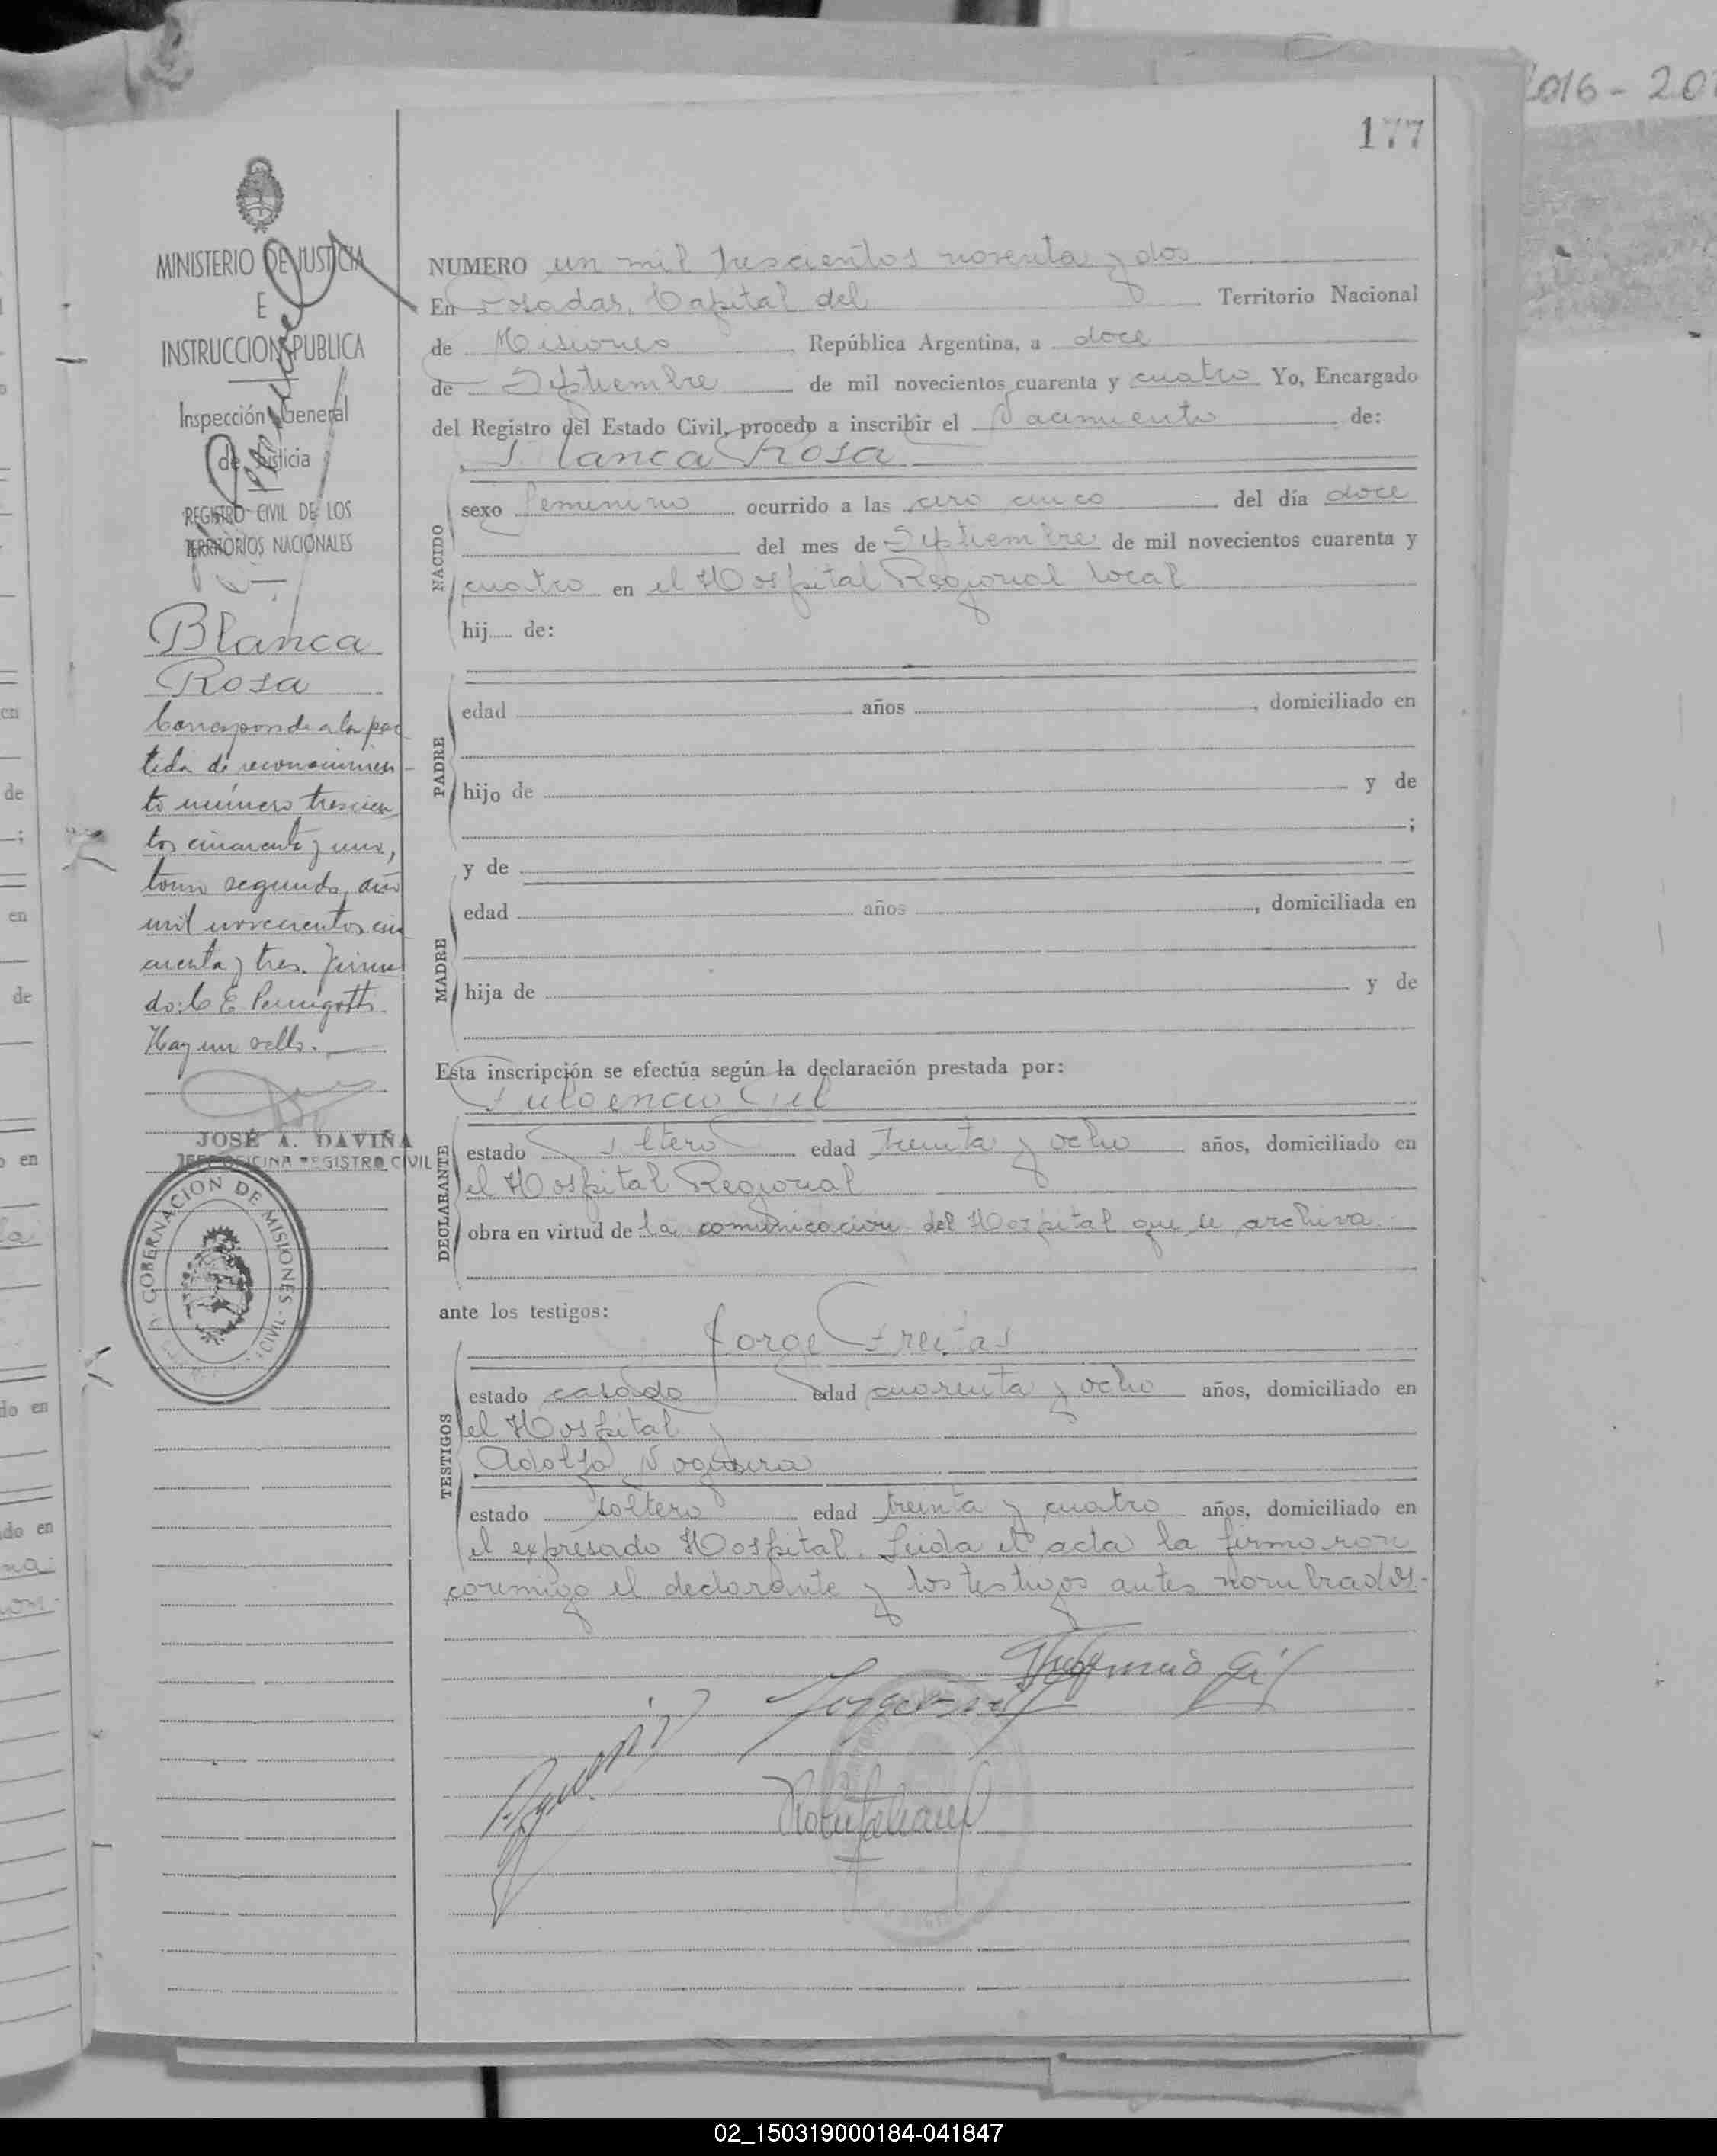 2016 - 20
177
MINISTERIO DE JUSTICIA
E
INSTRUCCION PUBLICA
Inspección General
de Justicia
REGISTRO CIVIL DE LOS
TERRITORIOS NACIONALES
Blanca
Rosa
Corresponde a la par
tida de reconocimien-
to número trescien
tos cincuenta y uno,
tomo segundo, año
mil novecientos cin
cuenta y tres. Firma
do: C E
Hay un sello.
JOSÉ A. DAVIÑA
JEFE OFICINA REGISTRO CIVIL
GOBERNACION DE MISIONES
CIVIL
NUMERO un mil trescientos noventa y dos
En Posadas, Capital del Territorio Nacional
de Misiones República Argentina, a doce
de Septiembre de mil novecientos cuarenta y cuatro Yo, Encargado
del Registro del Estado Civil, procedo a inscribir el Nacimiento de:
Blanca Rosa
NACIDO
sexo femenino ocurrido a las cero cinco del día doce
del mes de Septiembre de mil novecientos cuarenta y
cuatro en el Hospital Regional local
hij de:
PADRE
edad años , domiciliado en
hijo de y de
;
y de
MADRE
edad años , domiciliada en
hija de y de
Esta inscripción se efectúa según la declaración prestada por:
Fulgencio Gil
DECLARANTE
estado soltero edad treinta y ocho años, domiciliado en
el Hospital Regional
obra en virtud de la comunicacion del Hospital que se archiva.-
ante los testigos:
Jorge Freitas
TESTIGOS
estado casado edad cuarenta y ocho años, domiciliado en
el Hospital y
Adolfo Noguera
estado soltero edad treinta y cuatro años, domiciliado en
el expresado Hospital. Leida el acta la firmaron
conmigo el declarante y los testigos antes nombrados.-
Fulgencio Gil
02_150319000184-041847